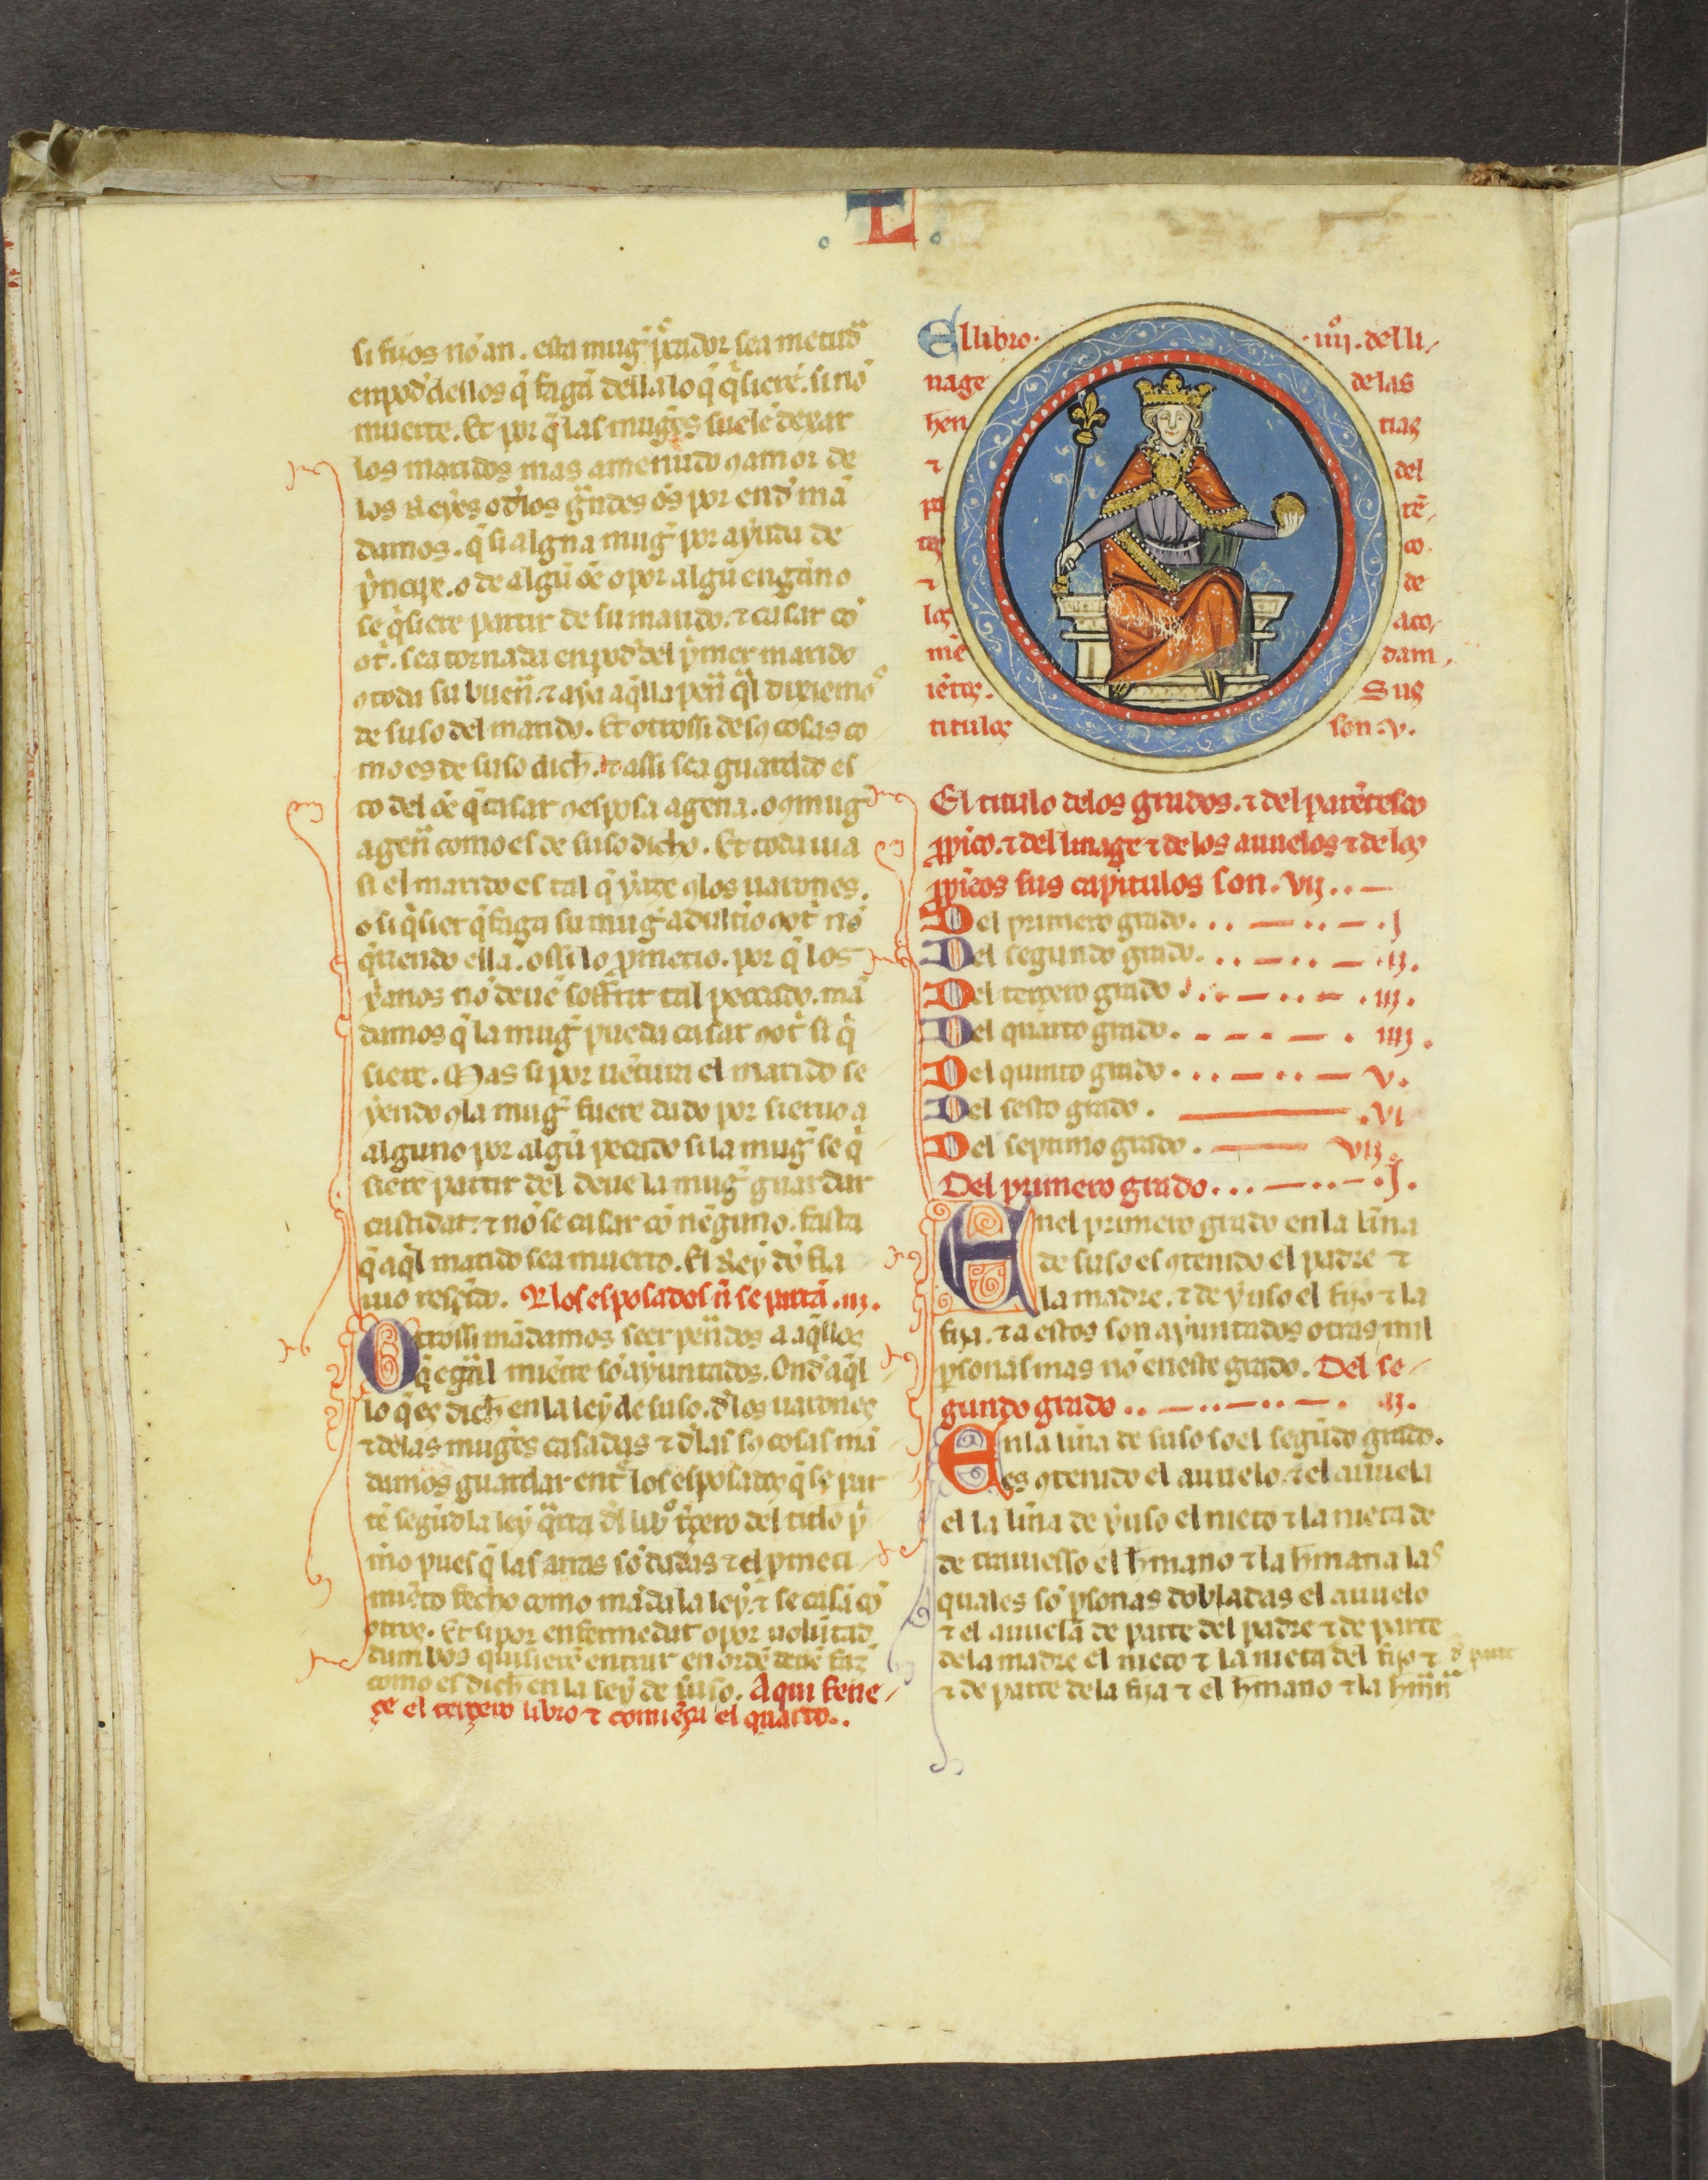 L
si fijos nõ an. esta mug̃ p̃cador sea metuda
en pod̃ dellos q̃ fagã della lo q̃ q̃sierẽ. si nõ
muerte. Et por q̃ las mug̃es suelẽ dexar
los maridos mas amenudo ꝯ amor de
los Reyes o d̃los grãdes oẽs por end̃ mã
damos. q̃ si alguna mug̃ por ayuda de
p̃ncipe. o de algũ oẽ o por algũ enganno
se q̃siere partir de su marido. ⁊ casar cõ
ot̃. sea tornada en pod̃ del p̃mer marido
ꝯ toda su buen̄. ⁊ aya aq̃lla pen̄ q̃l dixiemos
de suso del marido. Et otrossi de sꝯ cosas co
mo es de suso dich̃. ⁊ assi sea guardado es
to del oẽ q̃ casar ꝯ esposa agena. o ꝯ mug̃
agen̄ como es de suso dicho. Et toda uia
si el marido es tal q̃ yaze ꝯ los uarones.
o si q̃sier q̃ faga su mug̃ adult̃io ꝯ ot̃ nõ
q̃riendo ella. o ssi lo p̃metio. por q̃ los
x̃anos nõ deuẽ soffrir tal peccado. mã
damos q̃ la mug̃ pueda casar ꝯ ot̃ si q̃
siere. Mas si por uẽtura el marido se
yendo ꝯ la mug̃ fuere dado por sieruo a
alguno por algũ pecado si la mug̃ se q̃
siere partir del deue la mug̃ guardar
castidat. ⁊ nõ se casar cõ nẽguno. fasta
q̃ aq̃l marido sea muerto. El Rey dõ fla
uio resc̃ido. R los esposados ñ se partã .iij.
Otrossi mãdamos seer pen̄dos a aq̃llos
q̃ egual muerte sõ ayuntados. Ond̃ aq̃l
lo q̃ es dich̃ en la ley de suso. d̃ los uarones
⁊ delas mug̃es casadas ⁊ d̃las sꝯ cosas mã
damos guardar ent̃ los esposados q̃ se par
tẽ segũd la ley q̃rta d̃l libº t̃çero del titlo p̃
m̃o pues q̃ las arras sõ dadas ⁊ el p̃meti
miẽto fecho como mãda la ley. ⁊ se casã cõ
otros. Et si por enfermedat o por uolũtad
dambos quisierẽ entrar en ordẽ deuẽ faz̃
como es dich̃ en la ley de suso. Aqui fene
çe el terçero libro ⁊ comiẽça el quarto..
El libro. .iiijº. del li
nage delas
hen tias
⁊ del
pa rẽ
tes co
⁊ de
los aco
mẽ dam
iẽtos. Sus
titulos son .v.
El titulo delos grados. ⁊ del parẽtesco
p̃p̃ico. ⁊ del linage ⁊ de los auuelos ⁊ de los
p̃p̃icos sus capitulos son .vij..
Del primero grado... .j
Del segundo grado. .ij.
Del terçero grado .iij.
Del quarto grado. .iiij.
Del quinto grado. .v.
Del sesto grado. .vi
Del septimo grado. vij.
Del primero grado... .j.
En el primero grado en la liña
de suso es ꝯtenido el padre ⁊
la madre. ⁊ de yuso el fijo ⁊ la
fija. ⁊ a estos son ayuntados otras mil
p̃sonas mas nõ en este grado. Del se
gundo grado .. .ij.
En la liña de suso so el segũdo grado.
es ꝯtenido el auuelo. ⁊ el auuela
el la liña de yuso el nieto ⁊ la nieta de
de trauiesso el h̃mano ⁊ la h̃mana las
quales sõ p̃sonas dobladas el auuelo
⁊ el auuela de parte del padre ⁊ de parte
dela madre el nieto ⁊ la nieta del fijo ⁊ d̃ parte
⁊ de parte dela fija ⁊ el h̃mano ⁊ la h̃mãn